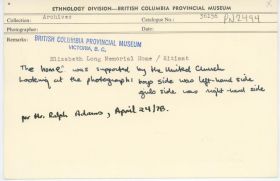 ETHNOLOGY DIVISION—BRITISH COLUMBIA PROVINCIAL MUSEUM
Collection: Archives Catalogue No.: 36256 PN2494
Photographer: Date:
Remarks: BRITISH COLUMBIA PROVINCIAL MUSEUM
VICTORIA, B. C.
Elizabeth Long Memorial Home / Kitimat
The "home" was supported by the United Church
Looking at the photograph: boys side was left-hand side
girls side was right-hand side
per Mr. Ralph Adams, April 24/78.